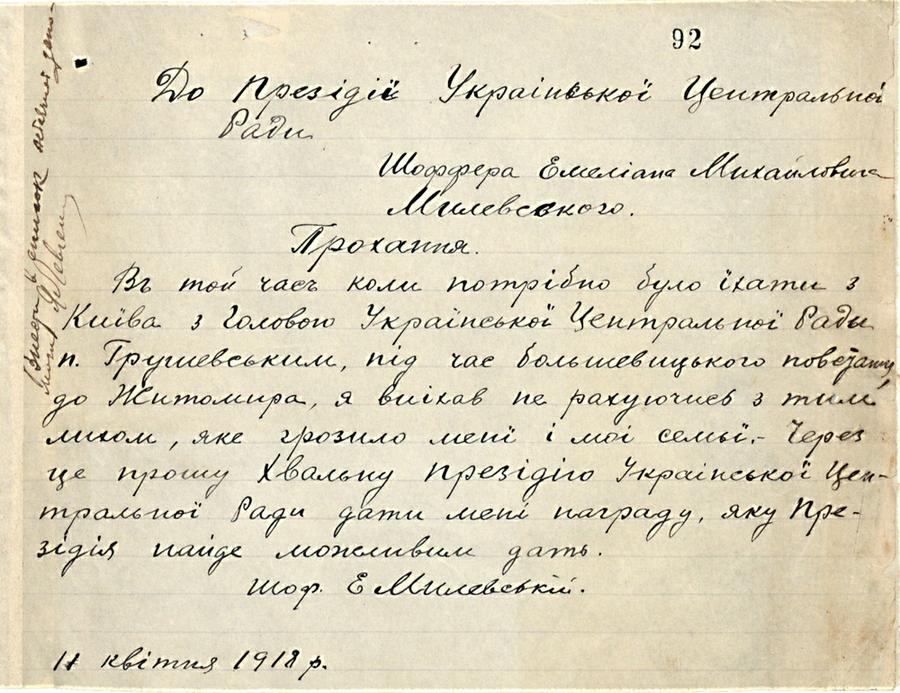 92
До Презідії Української Центральної
Ради
Шоффера Емеліана Михайловича
Милевського.
Прохання.
Въ той часъ коли потрібно було їхати з
Київа з Головою Української Центральної Ради
п. Грушевським, під час большевицького повстання,
до Житомира, я виїхав не рахуючись з тим
лихом, яке грозило мені і моі семьї.- Через
це прошу Хвальну Презідію Української Цен-
тральної Ради дати мені награду, яку Пре-
зідія найде можливим дать.
Шоф. Е Милевській.
11 квітня 1918 р.